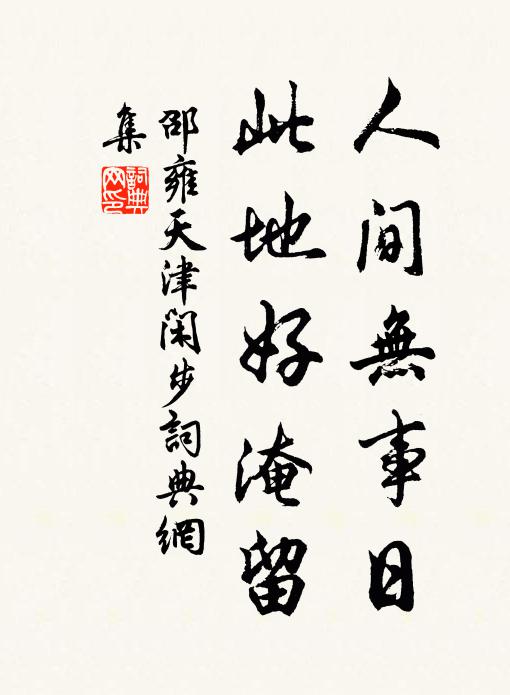 人間無事日
此地好淹留
邵雍天津閑步詞典網
集
詞典
网印